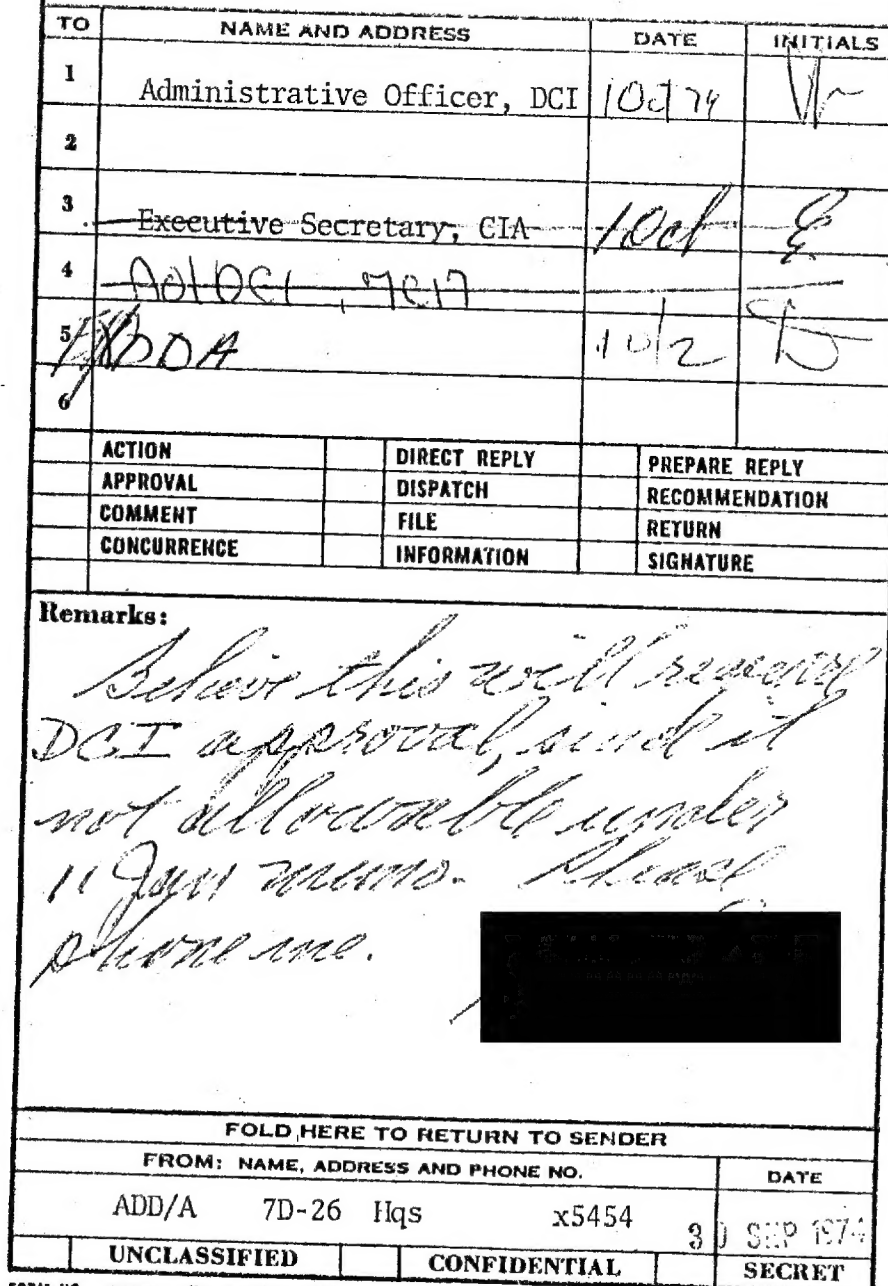 TO NAME AND ADDRESS DATE INITIALS
1 Administrative Officer, DCI 1 Oct 74
2
3 Executive Secretary, CIA 1 Oct
4 AO/DCI, 7C17
5 DDA 10/2
6
ACTION DIRECT REPLY PREPARE REPLY
APPROVAL DISPATCH RECOMMENDATION
COMMENT FILE RETURN
CONCURRENCE INFORMATION SIGNATURE
Remarks:
Believe this will require
DCI approval, since it
not allowable under
11 Jan memo. Please
phone me.
FOLD HERE TO RETURN TO SENDER
FROM: NAME, ADDRESS AND PHONE NO. DATE
ADD/A 7D-26 Hqs x5454 30 SEP 1974
UNCLASSIFIED CONFIDENTIAL SECRET